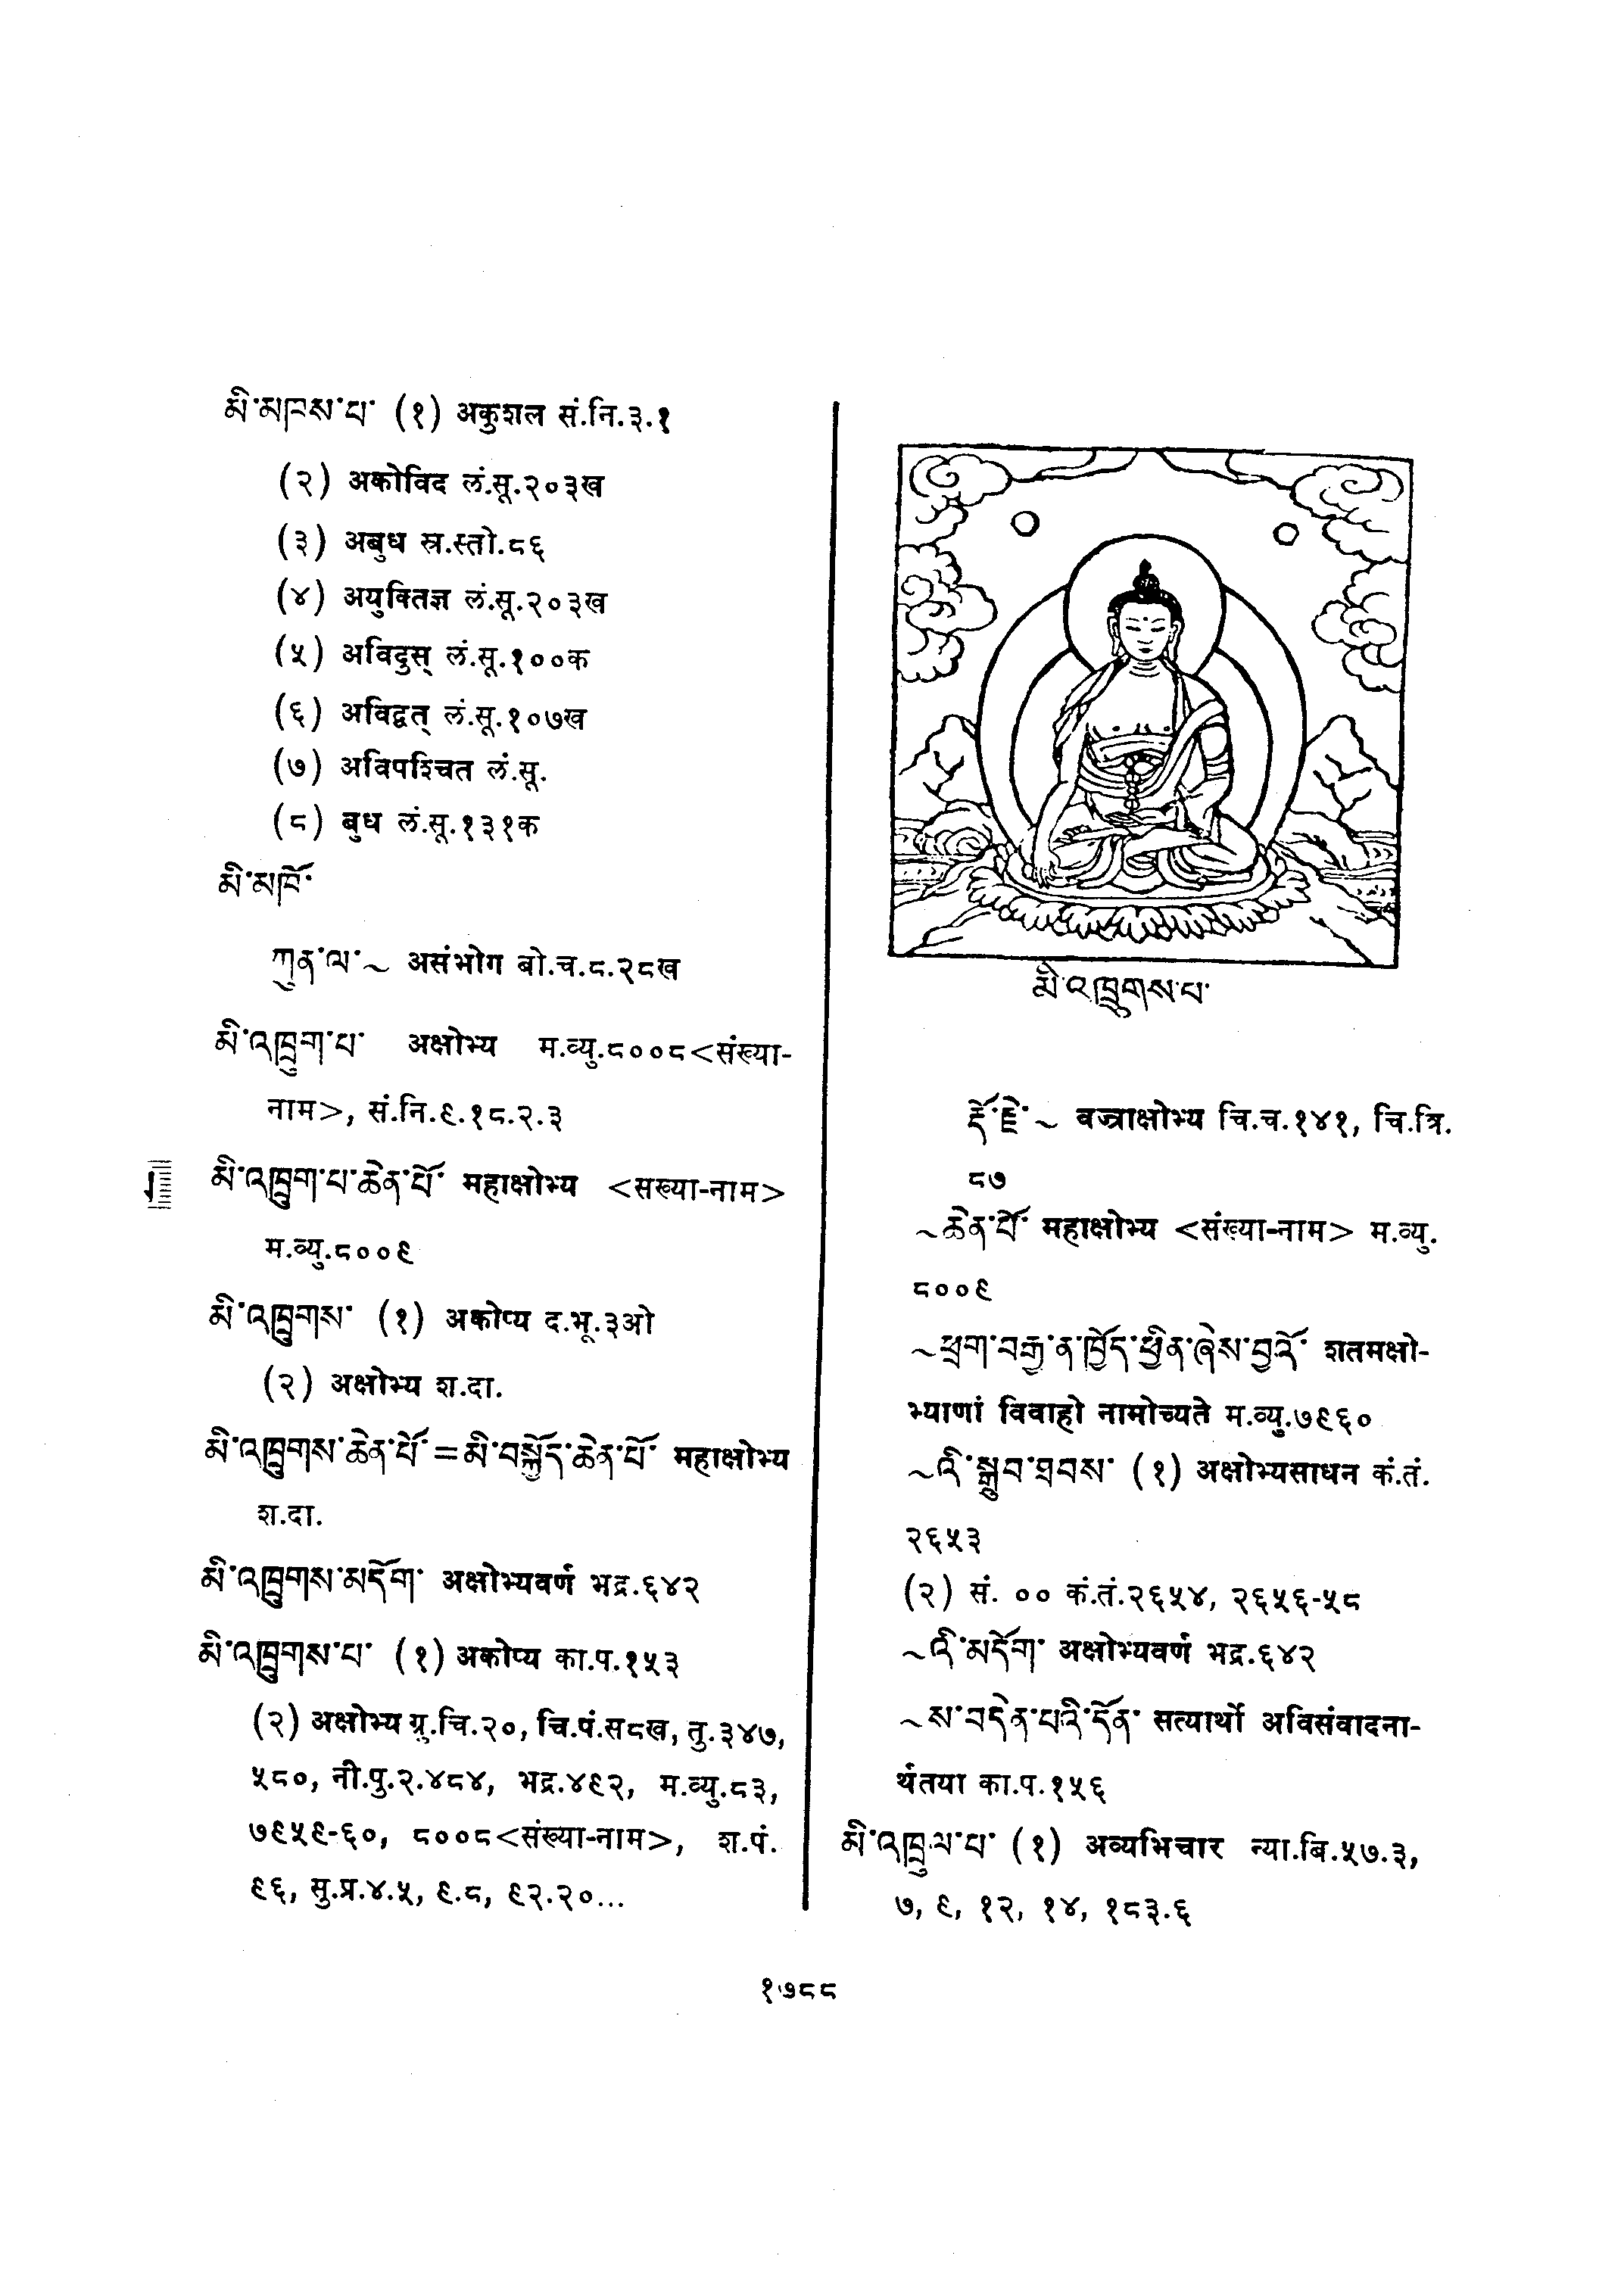 མི་མཁས་པ་ (१) अकुशल सं.नि.३.१
(२) अकोविद लं.सू.२०३ख
(३) अबुध स्र.स्तो.८६
(४) अयुक्तिज्ञ लं.सू.२०३ख
(५) अविदुस् लं.सू.१००क
(६) अविद्वत् लं.सू.१०७ख
(७) अविपश्चित लं.सू.
(८) बुध लं.सू.१३१क
མི་མཁོ་
ཀུན་ལ་~ असंभोग बो.च.८.२८ख
མི་འཁྲུག་པ་ अक्षोभ्य म.व्यु.८००८<संख्या-
नाम>, सं.नि.९.१८.२.३
མི་འཁྲུག་པ་ཆེན་པོ་ महाक्षोभ्य <सख्या-नाम>
म.व्यु.८००९
མི་འཁྲུགས་ (१) अकोप्य द.भू.३ओ
(२) अक्षोभ्य श.दा.
མི་འཁྲུགས་ཆེན་པོ་=མི་བསྐྱོད་ཆེན་པོ་ महाक्षोभ्य
श.दा.
མི་འཁྲུགས་མདོག་ अक्षोभ्यवर्ण भद्र.६४२
མི་འཁྲུགས་པ་ (१) अकोप्य का.प.१५३
(२) अक्षोभ्य ग्र.चि.२०, चि.पं.स८ख, तु.३४७,
५८०, नी.पु.२.४८४, भद्र.४९२, म.व्यु.८३,
७९५९-६०, ८००८<संख्या-नाम>, श.पं.
९६, सु.प्र.४.५, ९.८, ९२.२०...
མི་འཁྲུགས་པ་
རྡོ་རྗེ་~ वज्राक्षोभ्य चि.च.१४१, चि.त्रि.
८७
~ཆེན་པོ་ महाक्षोभ्य <संख्या-नाम> म.व्यु.
८००९
~ཕྲག་བརྒྱ་ན་ཁྱོད་ཕྱིན་ཞེས་བྱའོ་ शतमक्षो-
भ्याणां विवाहो नामोच्यते म.व्यु.७९६०
~འི་སྒྲུབ་ཐབས་ (१) अक्षोभ्यसाधन कं.तं.
२६५३
(२) सं. ०० कं.तं.२६५४, २६५६-५८
~འི་མདོག་ अक्षोभ्यवर्ण भद्र.६४२
~ས་བདེན་པའི་དོན་ सत्यार्थो अविसंवादना-
र्थंतया का.प.१५६
མི་འཁྲུལ་པ་ (१) अव्यभिचार न्या.बि.५७.३,
७, ९, १२, १४, १८३.६
१७८८